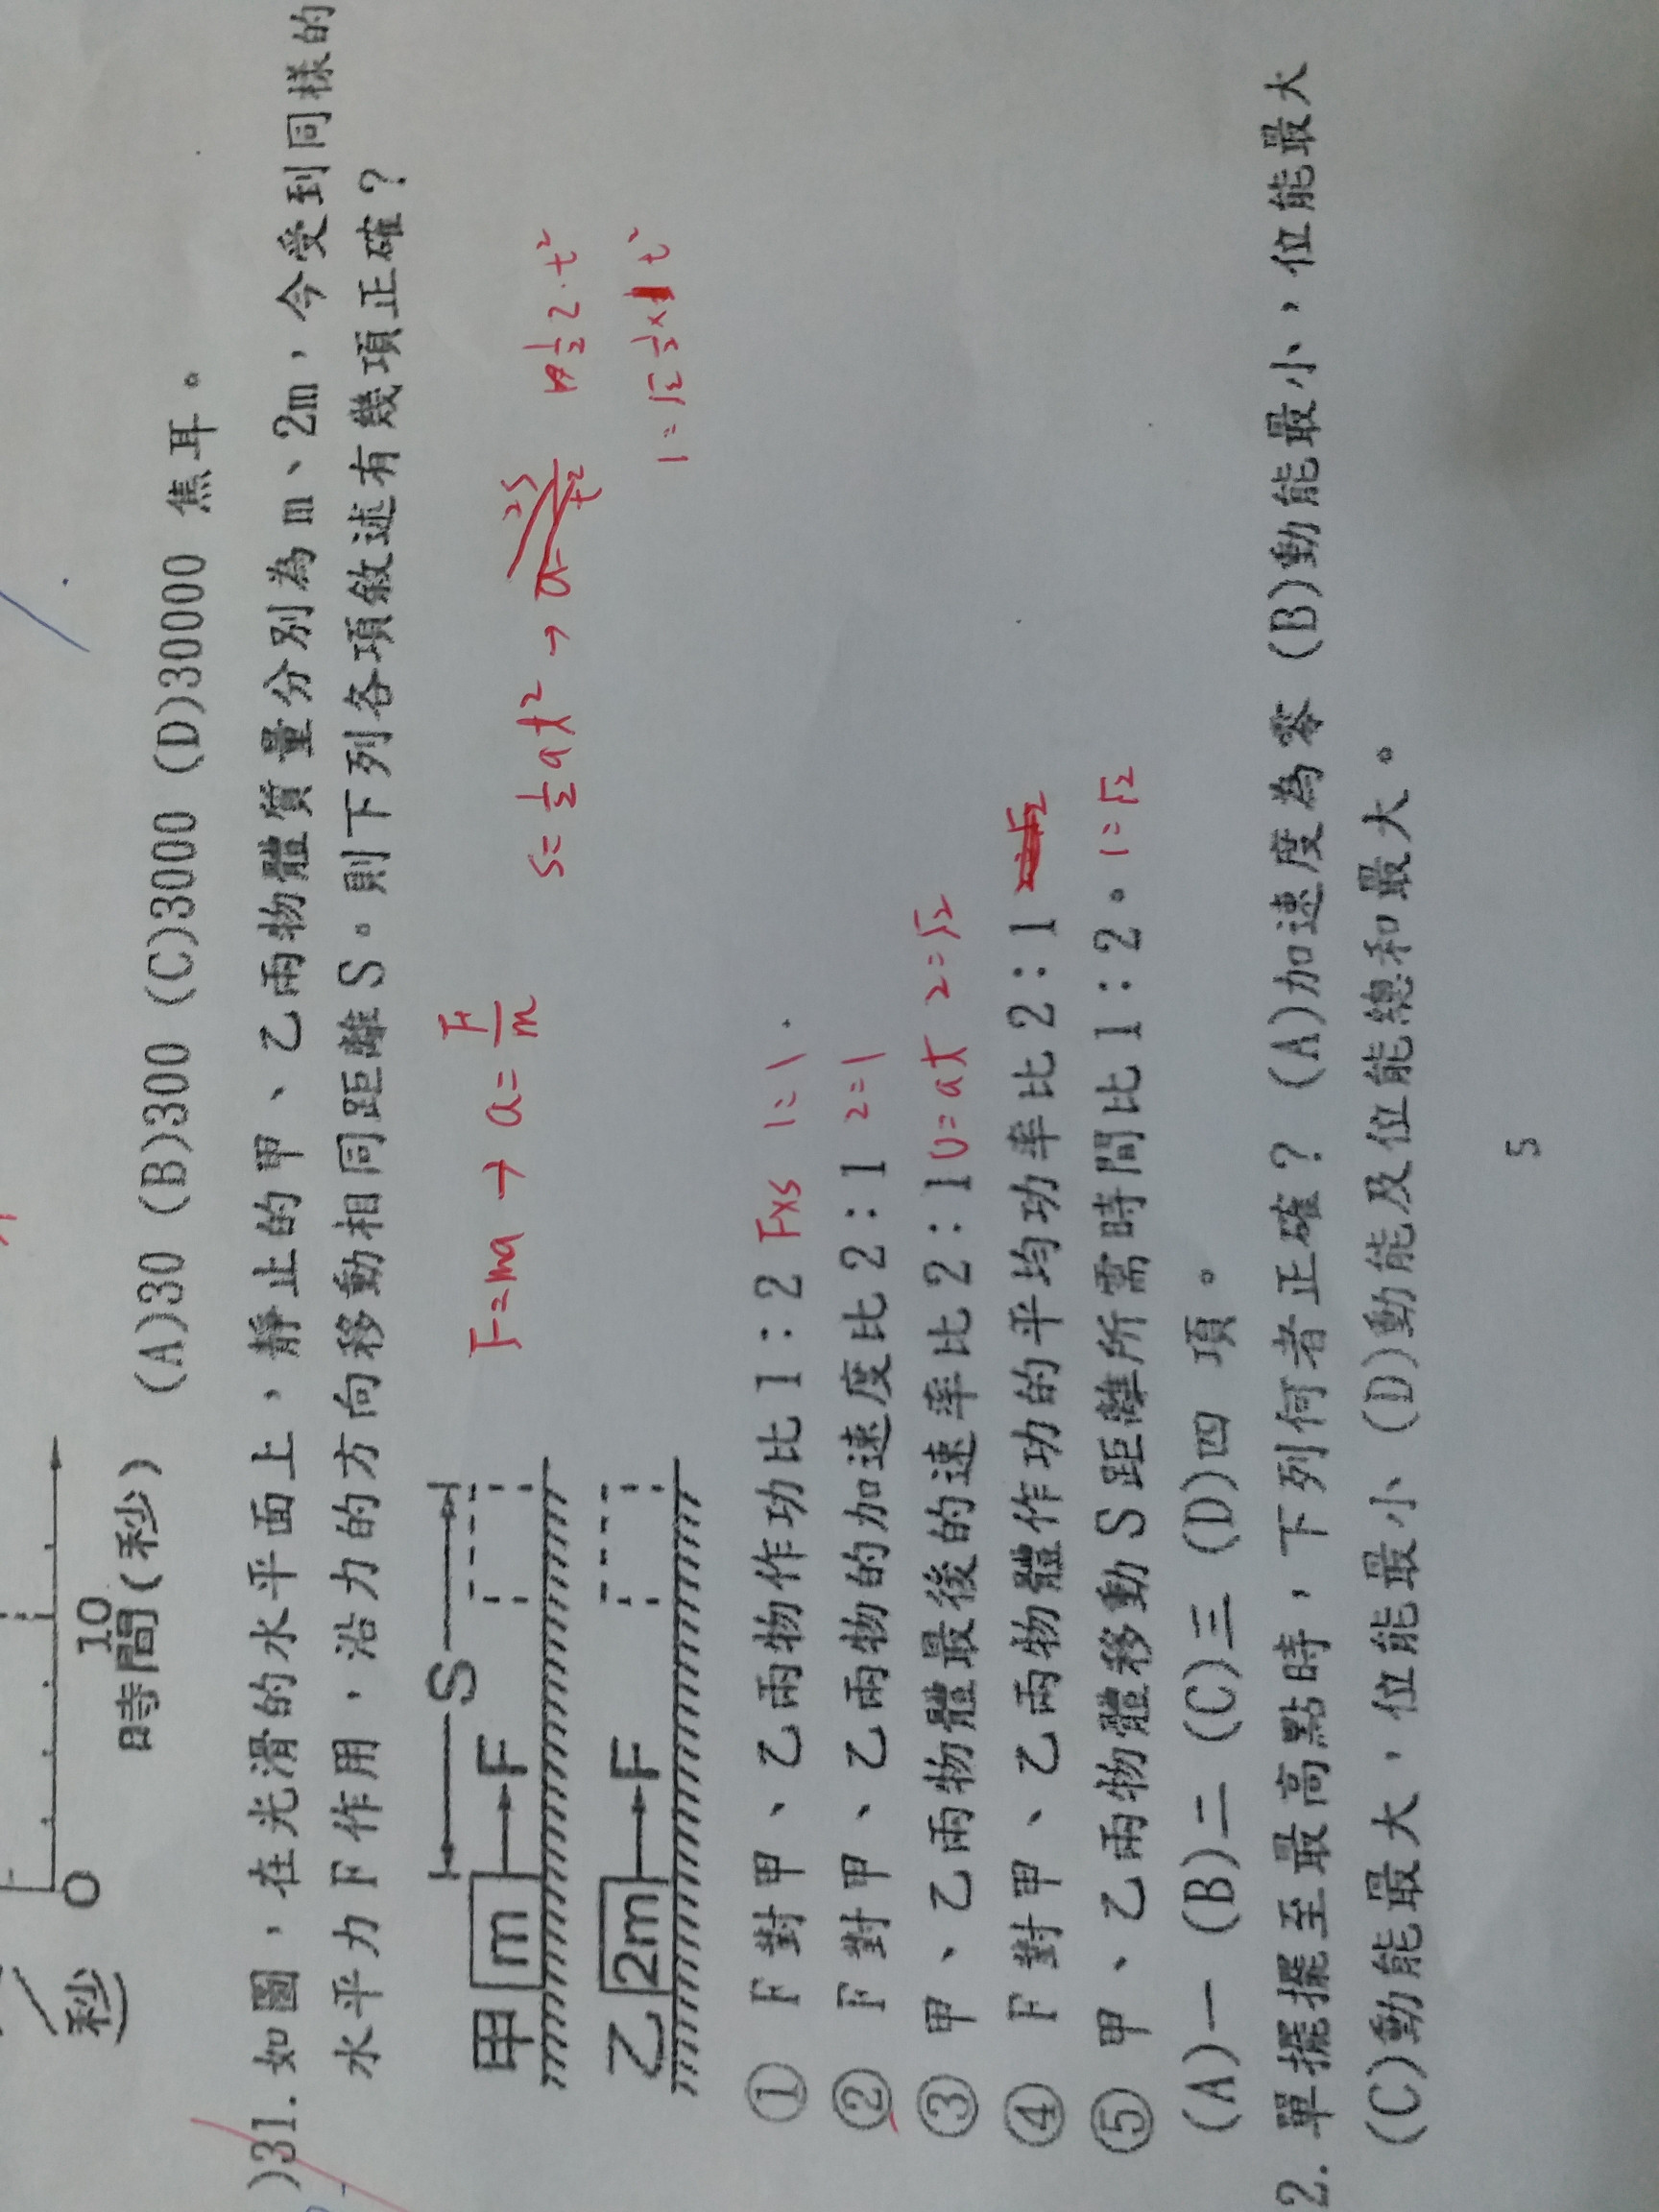 秒
0
10
時間(秒)
(A)30 (B)300 (C)3000 (D)30000 焦耳。
)31.如圖，在光滑的水平面上，靜止的甲、乙兩物體質量分別為m、2m，今受到同樣的
水平力F作用，沿力的方向移動相同距離S。則下列各項敘述有幾項正確？
F=ma → a=F/m
S=½at² → a=2S/t²
½2·t²
1=√2 ½×1 t²
S
甲 m F
乙 2m F
① F對甲、乙兩物作功比1：2 F×S 1=1
② F對甲、乙兩物的加速度比2：1 2=1
③ 甲、乙兩物體最後的速率比2：1 V=at 2=√2
④ F對甲、乙兩物體作功的平均功率比2：1
⑤ 甲、乙兩物體移動S距離所需時間比1：2。 1=√2
(A)一 (B)二 (C)三 (D)四 項。
2.單擺擺至最高點時，下列何者正確？ (A)加速度為零 (B)動能最小，位能最大
(C)動能最大，位能最小 (D)動能及位能總和最大。
5